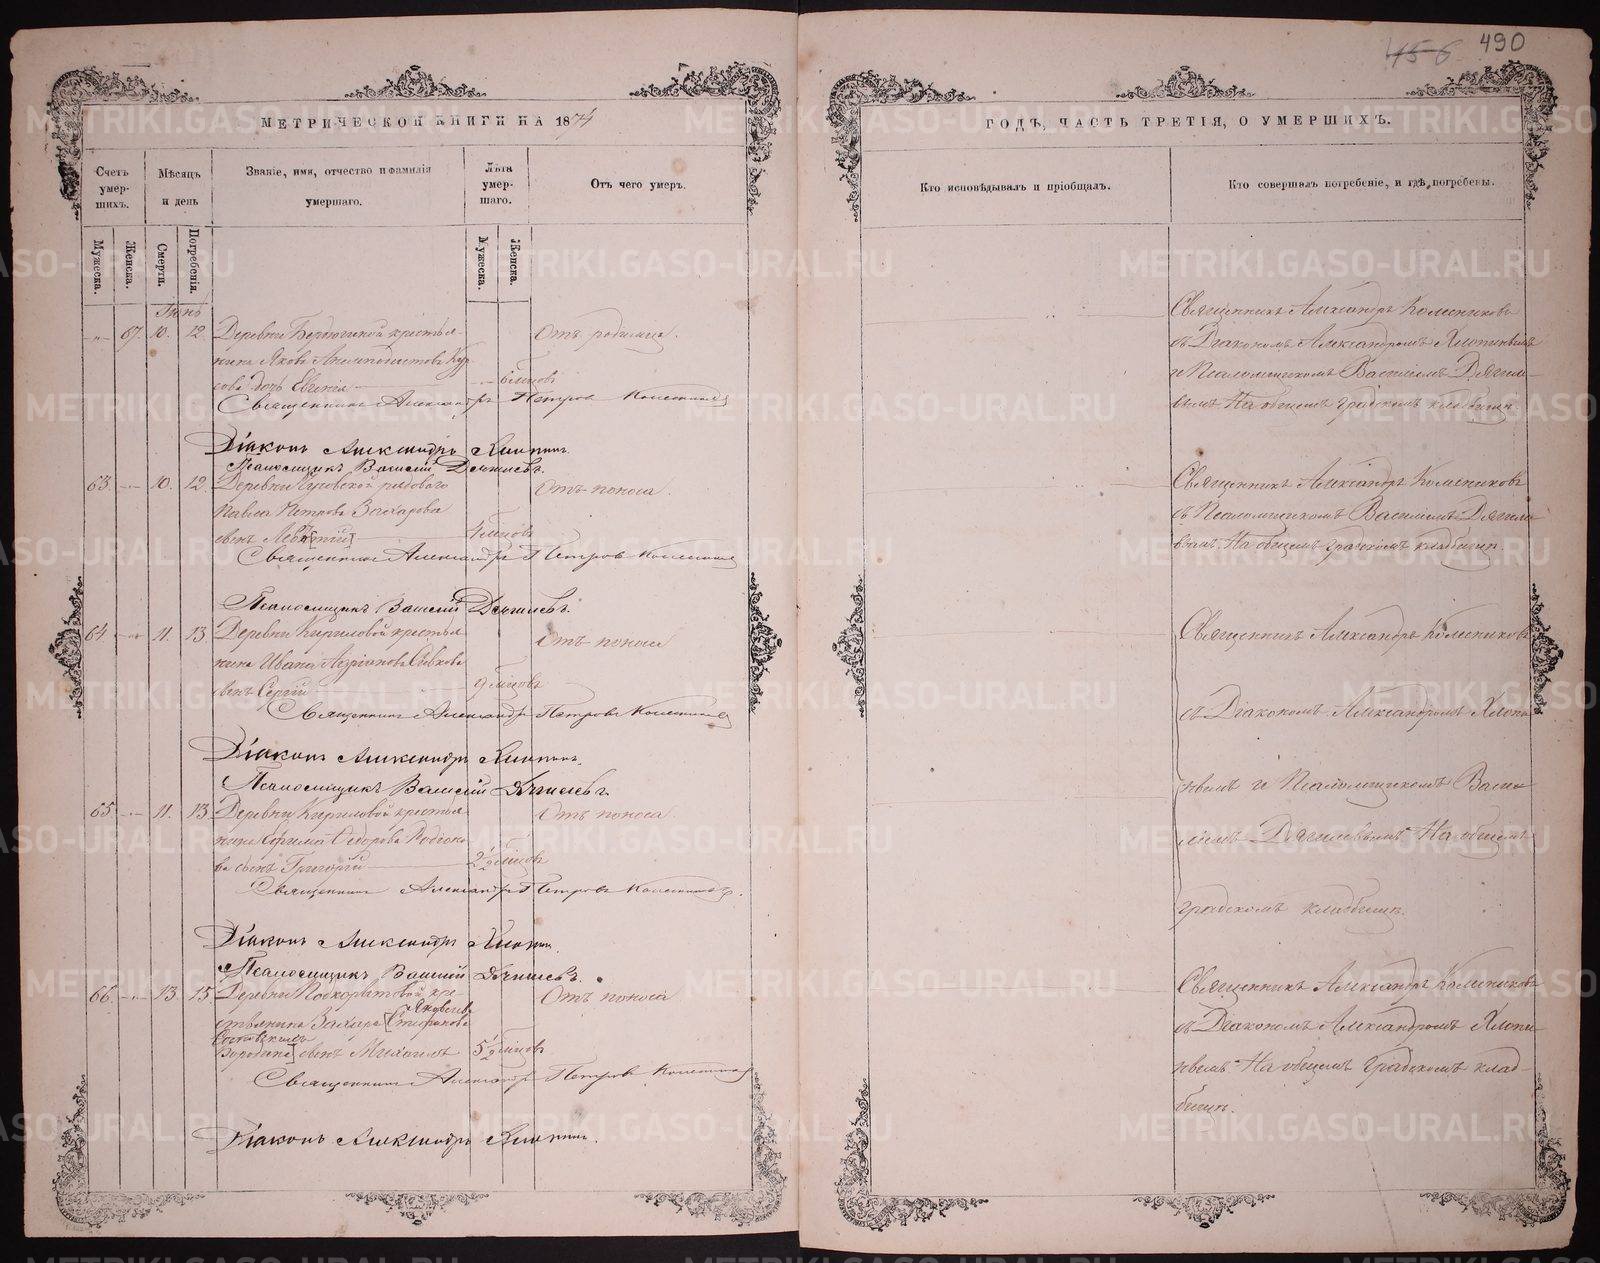 456 490
МЕТРИЧЕСКОЙ КНИГИ НА 1874
Счетъ умер-шихъ.
Мѣсяцъ и день
Званіе, имя, отчество и фамилія умершаго.
Лѣта умер-шаго.
Отъ чего умеръ.
Мужеска.
Женска.
Смерти.
Погребенія.
Мужеска.
Женска.
67. 10. 12. Деревни крестья-
нина Якова
дочь
Отъ родимца.
Священникъ Александръ Петровъ Колесниковъ
Діаконъ Александръ Хлопинъ.
Псаломщикъ Василій Дягилевъ.
63. 10. 12. Деревни рядового
Павла Петрова Захарова
сынъ
4 мѣсяцовъ
Отъ поноса.
Священникъ Александръ Петровъ Колесниковъ
Псаломщикъ Василій Дягилевъ.
64 11. 13. Деревни Кириловой крестья-
нина Ивана
сынъ Сергій
9 мѣсяцовъ
Отъ поноса
Священникъ Александръ Петровъ Колесниковъ
Діаконъ Александръ Хлопинъ.
Псаломщикъ Василій Дягилевъ.
65 11. 13. Деревни Кириловой крестья-
нина Федорова
сынъ Григорій
2½ мѣсяцовъ
Отъ поноса.
Священникъ Александръ Петровъ Колесниковъ.
Діаконъ Александръ Хлопинъ.
Псаломщикъ Василій Дягилевъ.
66. 13. 15. Деревни Подкорытовой кре-
стьянина Захара
сынъ Михаилъ
5½ мѣсяцовъ
Отъ поноса
Священникъ Александръ Петровъ Колесниковъ
Діаконъ Александръ Хлопинъ.
ГОДЪ, ЧАСТЬ ТРЕТІЯ, О УМЕРШИХЪ.
Кто исповѣдывалъ и пріобщалъ.
Кто совершалъ погребеніе, и гдѣ погребены.
Священникъ Александръ Колесниковъ
съ Діакономъ Александромъ Хлопинымъ
и Псаломщикомъ Василіемъ Дягиле-
вымъ На общемъ градскомъ кладбищѣ.
Священникъ Александръ Колесниковъ
съ Псаломщикомъ Василіемъ Дягиле-
вымъ. На общемъ градскомъ кладбищѣ.
Священникъ Александръ Колесниковъ
съ Діакономъ Александромъ Хлопи-
нымъ и Псаломщикомъ Васи-
ліемъ Дягилевымъ На общемъ
градскомъ кладбищѣ.
Священникъ Александръ Колесниковъ
съ Діакономъ Александромъ Хлопи-
нымъ На общемъ Градскомъ клад-
бищѣ.
METRIKI.GASO-URAL.RU